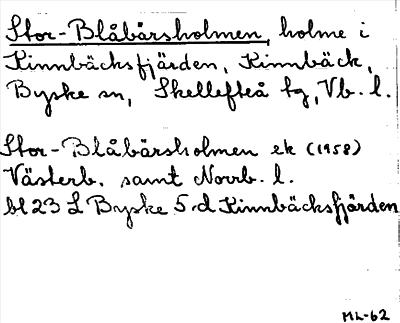 Stor-Blåbärsholmen, holme i
Kinnbäcksfjärden, Kinnbäck,
Byske sn, Skellefteå tg, Vb. l.
Stor-Blåbärsholmen ek (1958)
Västerb. samt Norrb. l.
bl 23 L Byske 5 d Kinnbäcksfjärden
ML-62